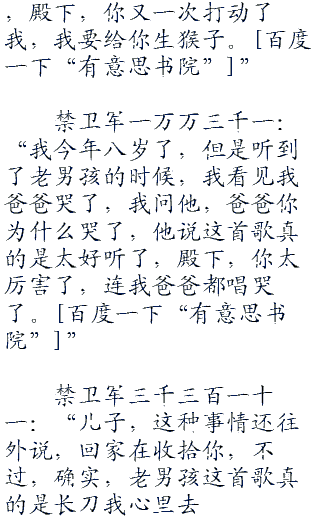 ，殿下，你又一次打动了
我，我要给你生猴子。[百度
一下“有意思书院”]”
禁卫军一万万三千一：
“我今年八岁了，但是听到
了老男孩的时候，我看见我
爸爸哭了，我问他，爸爸你
为什么哭了，他说这首歌真
的是太好听了，殿下，你太
厉害了，连我爸爸都唱哭
了。[百度一下“有意思书
院”]”
禁卫军三千三百一十
一：“儿子，这种事情还往
外说，回家在收拾你，不
过，确实，老男孩这首歌真
的是长刀我心里去